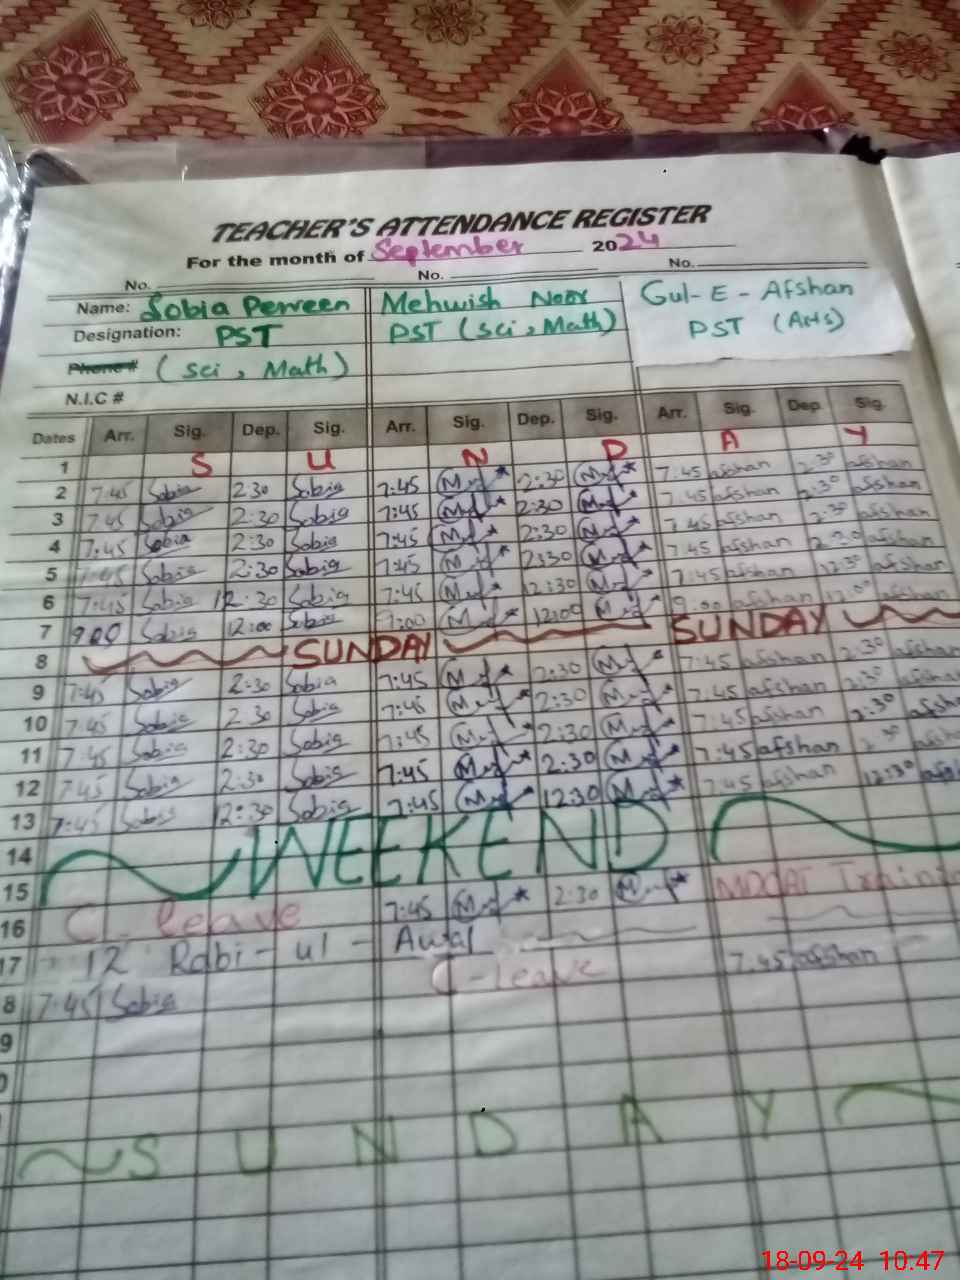 TEACHER'S ATTENDANCE REGISTER
For the month of September 2024
No. No. No.
Name: Sobia Perveen Mehwish Noor Gul-E-Afshan
Designation: PST PST (Sci, Math) PST (Arts)
Phone # (Sci, Math)
N.I.C #
Dates Arr. Sig. Dep. Sig. Arr. Sig. Dep. Sig. Arr. Sig. Dep. Sig.
1 S U N D A Y
2 7:45 Sobia 2:30 Sobia 7:45 2:30 7:45 afshan 2:30 afshan
3 7:45 Sobia 2:30 Sobia 7:45 2:30 7:45 afshan 2:30 afshan
4 7:45 Sobia 2:30 Sobia 7:45 2:30 7:45 afshan 2:30 afshan
5 7:45 Sobia 2:30 Sobia 7:45 2:30 7:45 afshan 2:30 afshan
6 7:45 Sobia 12:30 Sobia 7:45 12:30 7:45 afshan 12:30 afshan
7 900 Sobia 12:00 Sobia 9:00 12:00 9:00 afshan 12:00 afshan
8 SUNDAY SUNDAY
9 7:45 Sobia 2:30 Sobia 7:45 2:30 7:45 afshan 2:30 afshan
10 7:45 Sobia 2:30 Sobia 7:45 2:30 7:45 afshan 2:30 afshan
11 7:45 Sobia 2:30 Sobia 7:45 2:30 7:45 afshan 2:30
12 7:45 Sobia 2:30 Sobia 7:45 2:30 7:45 afshan 2:30
13 7:45 Sobia 12:30 Sobia 7:45 12:30 7:45 afshan 12:30
14 WEEKEND
15
16 C. leave 7:45 2:30 Training
17 12 Rabi-ul-Awal
8 7:45 Sobia C-leave 7:45 afshan
9
0
SUNDAY
18-09-24 10:47